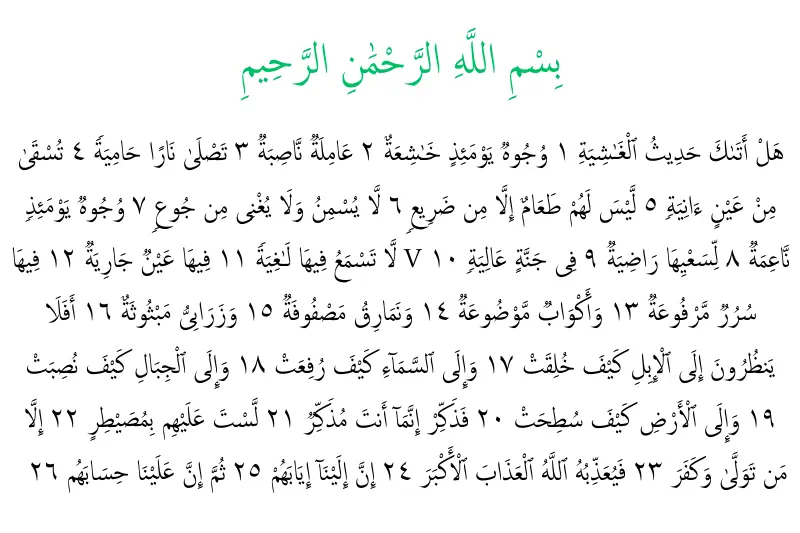 بِسْمِ اللَّهِ الرَّحْمَٰنِ الرَّحِيمِ
هَلْ أَتَىٰكَ حَدِيثُ ٱلْغَـٰشِيَةِ ١ وُجُوهٌ يَوْمَئِذٍ خَـٰشِعَةٌ ٢ عَامِلَةٌ نَّاصِبَةٌ ٣ تَصْلَىٰ نَارًا حَامِيَةً ٤ تُسْقَىٰ
مِنْ عَيْنٍ ءَانِيَةٍ ٥ لَّيْسَ لَهُمْ طَعَامٌ إِلَّا مِن ضَرِيعٍ ٦ لَّا يُسْمِنُ وَلَا يُغْنِى مِن جُوعٍ ٧ وُجُوهٌ يَوْمَئِذٍ
نَّاعِمَةٌ ٨ لِّسَعْيِهَا رَاضِيَةٌ ٩ فِى جَنَّةٍ عَالِيَةٍ ١٠ V لَّا تَسْمَعُ فِيهَا لَـٰغِيَةً ١١ فِيهَا عَيْنٌ جَارِيَةٌ ١٢ فِيهَا
سُرُرٌ مَّرْفُوعَةٌ ١٣ وَأَكْوَابٌ مَّوْضُوعَةٌ ١٤ وَنَمَارِقُ مَصْفُوفَةٌ ١٥ وَزَرَابِىُّ مَبْثُوثَةٌ ١٦ أَفَلَا
يَنظُرُونَ إِلَى ٱلْإِبِلِ كَيْفَ خُلِقَتْ ١٧ وَإِلَى ٱلسَّمَآءِ كَيْفَ رُفِعَتْ ١٨ وَإِلَى ٱلْجِبَالِ كَيْفَ نُصِبَتْ
١٩ وَإِلَى ٱلْأَرْضِ كَيْفَ سُطِحَتْ ٢٠ فَذَكِّرْ إِنَّمَآ أَنتَ مُذَكِّرٌ ٢١ لَّسْتَ عَلَيْهِم بِمُصَيْطِرٍ ٢٢ إِلَّا
مَن تَوَلَّىٰ وَكَفَرَ ٢٣ فَيُعَذِّبُهُ ٱللَّهُ ٱلْعَذَابَ ٱلْأَكْبَرَ ٢٤ إِنَّ إِلَيْنَآ إِيَابَهُمْ ٢٥ ثُمَّ إِنَّ عَلَيْنَا حِسَابَهُم ٢٦